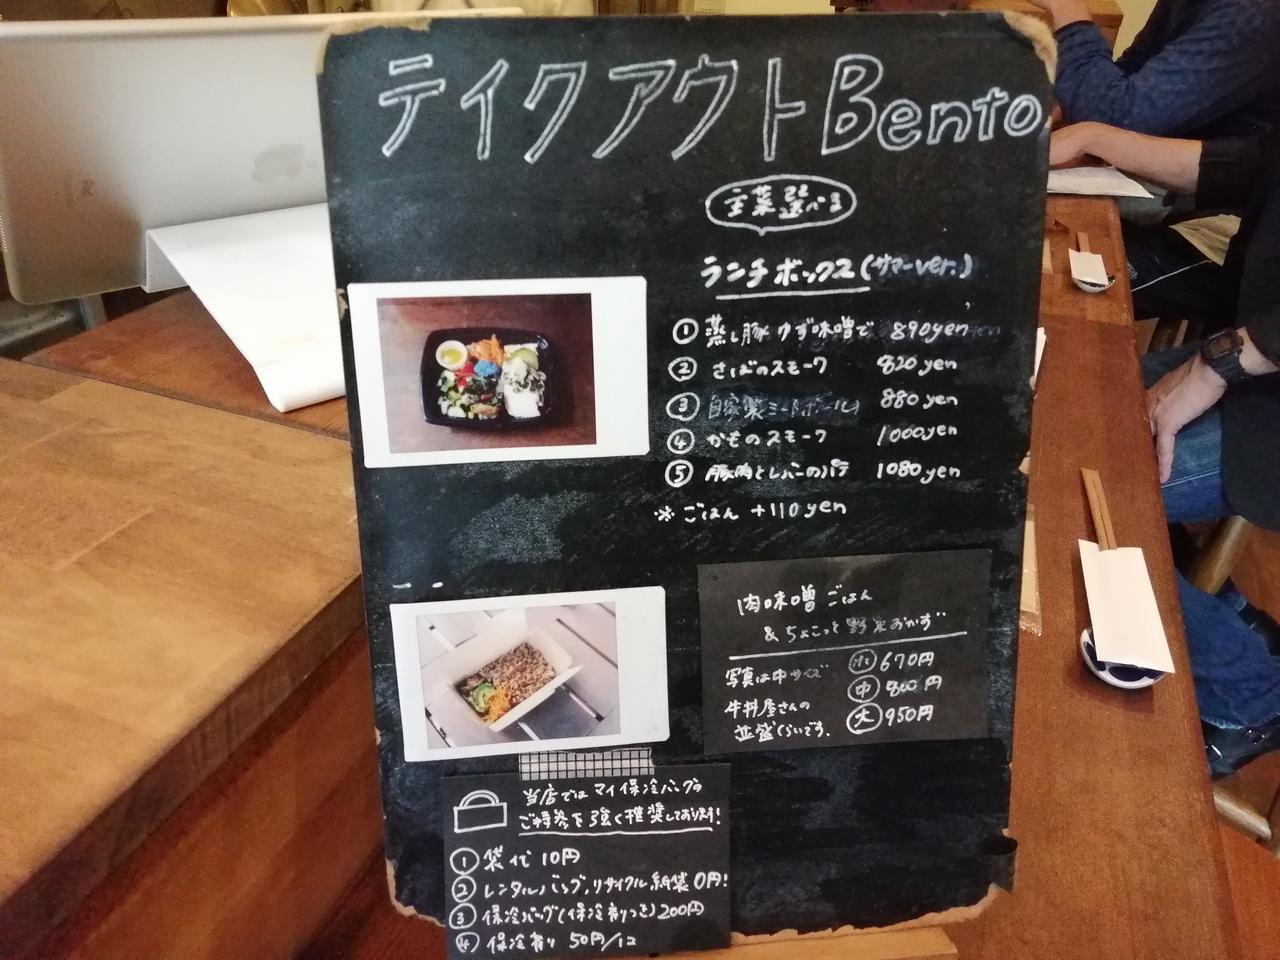 テイクアウトBento
主菜選べる
ランチボックス(サマーver.)
① 蒸し豚 ゆず味噌で 890yen
② さばのスモーク 820yen
③ 自家製ミートボール 880yen
④ かものスモーク 1000yen
⑤ 豚肉とレバーのパテ 1080yen
※ ごはん +110yen
肉味噌ごはん
& ちょこっと野菜おかず
写真は中サイズ
牛丼屋さんの
並盛くらいです。
小 670円
中 800円
大 950円
当店ではマイ保冷バッグの
ご持参を強く推奨しております!
① 袋代 10円
② レンタルバッグ,リサイクル紙袋 0円!
③ 保冷バッグ(保冷剤つき) 200円
④ 保冷剤 50円/1コ